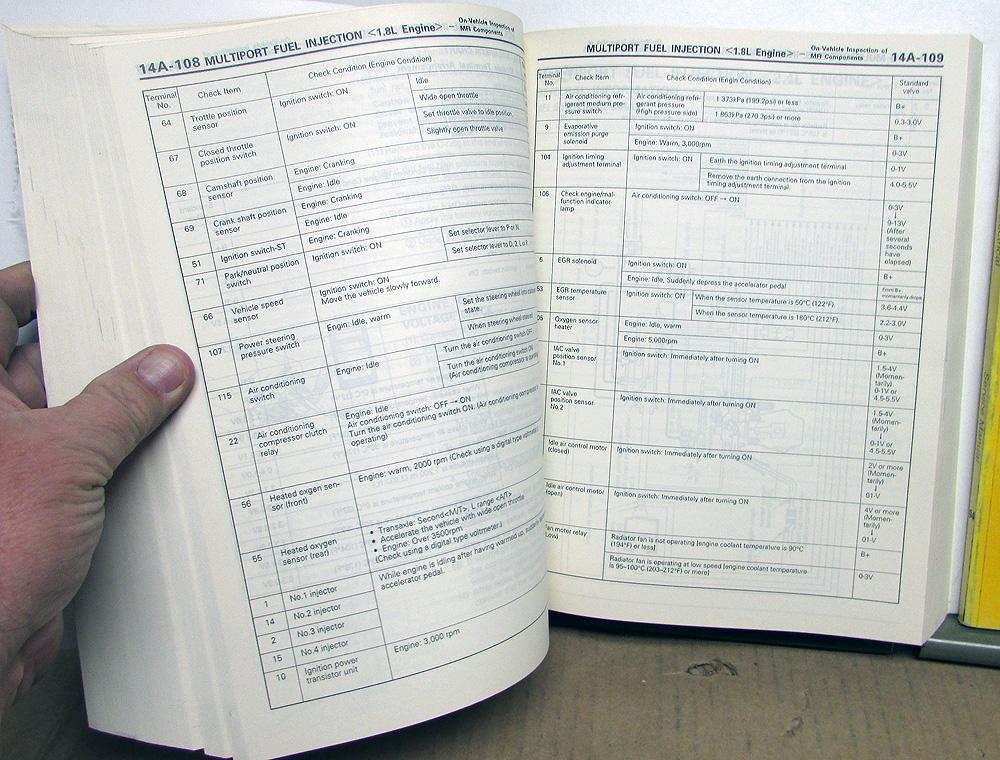 14A-108 MULTIPORT FUEL INJECTION <1.8L Engine> – On-Vehicle Inspection of
MFI Components
Terminal
No.
Check Item
Check Condition (Engine Condition)
64
Trottle position
sensor
Ignition switch: ON
Idle
Wide open throttle
67
Closed throttle
position switch
Ignition switch: ON
Set throttle valve to idle position
Slightly open throttle valve
68
Camshaft position
sensor
Engine: Cranking
Engine: Idle
69
Crank shaft position
sensor
Engine: Cranking
Engine: Idle
51
Ignition switch-ST
Engine: Cranking
71
Park/neutral position
switch
Ignition switch: ON
Set selector lever to P or N
Set selector lever to D, 2, L or
66
Vehicle speed
sensor
Ignition switch: ON
Move the vehicle slowly forward.
107
Power steering
pressure switch
Engin: Idle, warm
Set the steering wheel
state.
When steering wheel
115
Air conditioning
switch
Engine: Idle
Turn the air conditioning switch OFF
Turn the air conditioning switch ON
(Air conditioning compressor is
22
Air conditioning
compressor clutch
relay
Engine: Idle
Air conditioning switch: OFF → ON
Turn the air conditioning switch ON. (Air conditioning compressor
operating)
56
Heated oxgen sen-
sor (front)
Engine: warm, 2000 rpm (Check using a digital type
55
Heated oxygen
sensor (rear)
• Transaxle: Second<M/T>, L range <A/T>
• Accelerate the vehicle with wide open throttle
• Engine: Over 3500rpm
(Check using a digital type voltmeter.)
1
No.1 injector
While engine is idling after having warmed up,
accelerator pedal.
14
No.2 injector
2
No.3 injector
15
No.4 injector
10
Ignition power
transistor unit
Engine: 3,000 rpm
MULTIPORT FUEL INJECTION <1.8L Engine> – On-Vehicle Inspection of
MFI Components
14A-109
Terminal
No.
Check Item
Check Condition (Engin Condition)
Standard
valve
11
Air conditioning ref-
rigerant medium pre-
ssure switch
Air conditioning refri-
gerant pressure
(High pressure side)
1 373kPa (199.2psi) or less
B+
1 863kPa (270.3psi) or more
0.3-3.0V
9
Evaporative
emission purge
solenoid
Ignition switch: ON
B+
Engine: Warm, 3,000rpm
0-3V
104
Ignition timing
adjustment terminal
Ignition switch: ON
Earth the ignition timing adjustment terminal
0-1V
Remove the earth connection from the ignition
timing adjustment terminal.
4.0-5.5V
105
Check engine/mal-
function indicator
lamp
Air conditioning switch: OFF → ON
0-3V
↓
9-13V
(After
several
seconds
have
elapsed)
6
EGR solenoid
Ignition switch: ON
B+
Engine: Idle, Suddenly depress the accelerator pedal
From B+
momentarily drops
53
EGR temperature
sensor
Ignition switch: ON
When the sensor temperature is 50°C (122°F).
3.6-4.4V
When the sensor temperature is 180°C (212°F).
2.2-3.0V
05
Oxygen sensor
heater
Engine: Idle, warm
0-3V
Engine: 5,000rpm
B+
IAC valve
position sensor
No.1
Ignition switch: Immediately after turning ON
1.5-4V
(Momen-
tarily)
0-1V or
4.5-5.5V
IAC valve
position sensor
No.2
Ignition switch: Immediately after turning ON
1.5-4V
(Momen-
tarily)
↓
0-1V or
4.5-5.5V
Idle air control motor
(closed)
Ignition switch: Immediately after turning ON
2V or more
(Momen-
tarily)
↓
01-V
Idle air control motor
(open)
Ignition switch: Immediately after turning ON
4V or more
(Momen-
tarily)
↓
01-V
fan motor relay
(Low)
Radiator fan is not operating [engine coolant temperature is 90°C
(194°F) or less]
B+
Radiator fan is operating at low speed [engine coolant temperature
is 95–100°C (203–212°F) or more]
0-3V